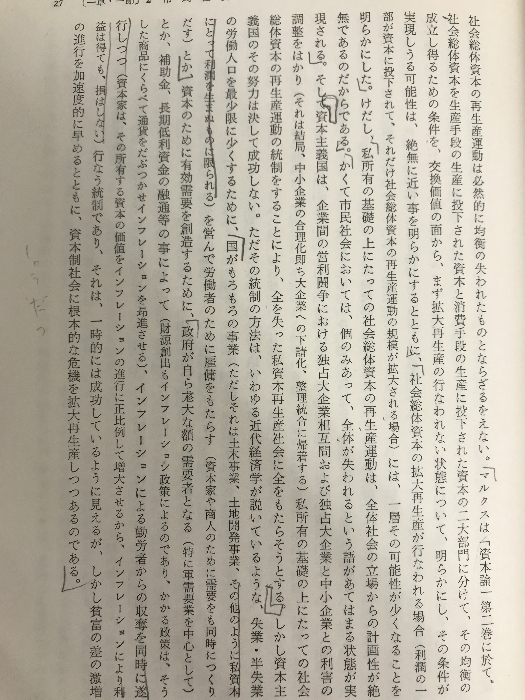 27
社会総体資本の再生産運動は必然的に均衡の失われたものとならざるをえない。「マルクスは「資本論」第二巻に於て、
社会総体資本を生産手段の生産に投下された資本と消費手段の生産に投下された資本の二大部門に分けて、その均衡の
成立し得るための条件を、交換価値の面から、まず拡大再生産の行なわれない状態について、明らかにし、その条件が
実現しうる可能性は、絶無に近い事を明らかにするとともに、「社会総体資本の拡大再生産が行なわれる場合(利潤の一
部が資本に投下されて、それだけ社会総体資本の再生産運動の規模が拡大される場合)には、一層その可能性が少くなることを
明らかにした。けだし、「私所有の基礎の上にたっての社会総体資本の再生産運動は、全体社会の立場からの計画性が絶
無であるのだからである。「かくて市民社会においては、個のみあって、全体が失われるという話があてはまる状態が実
現される。そして資本主義国は、企業間の営利闘争における独占大企業相互間および独占大企業と中小企業との利害の
調整をはかり(それは結局、中小企業の合理化即ち大企業への下請化、整理統合に帰着する)私所有の基礎の上にたっての社会
総体資本の再生産運動の統制をすることにより、全を失った私資本再生産社会に全をもたらそうとする。しかし資本主
義国のその努力は決して成功しない。ただその統制の方法は、いわゆる近代経済学が説いているような、失業・半失業
の労働人口を最少限に少くするために、「国がもろもろの事業(ただしそれは土木事業、土地開発事業、その他のように私資本
にとって利潤を生まぬものに限られる)を営んで労働者のために雇傭をもたらす(資本家や商人のために需要をも同時につくり
だす)とか、資本のために有効需要を創造するために、「政府が自ら尨大な額の需要者となる(特に軍需要業を中心として)
とか、補助金、長期低利資金の融通等の事によって(財源創出もインフレーション政策によるのであり、かかる政策は、そう
した商品にくらべて通貨をだぶつかせインフレーションを昂進させる)、インフレーションによる勤労者からの収奪を同時に遂
行しつつ(資本家は、その所有する資本の価値をインフレーションの進行に正比例して増大させるから、インフレーションにより利
益は得ても、損はしない)行なう統制であり、それは、一時的には成功しているように見えるが、しかし貧富の差の激増
の進行を加速度的に早めるとともに、資本制社会に根本的な危機を拡大再生産しつつあるのである。